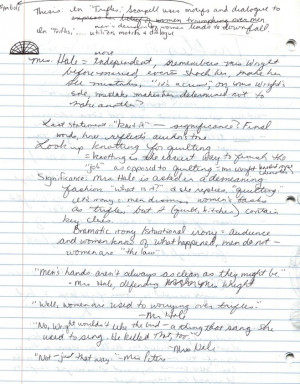 Symbols
Thesis: In "Trifles," Glaspell uses motifs and dialogue to
In "Trifles," ... utilizes motifs & dialogue
more
Mrs. Hale - Independent, remembers Mrs. Wright
before married - event shook her, made her
see mistakes, "it's a crime", on Mrs. Wright's
side, makes her determined not to
make another?
Last statement "knot it" — significance? Final
words, how
Look up knotting for quilting
- knotting is the easiest way to finish the
"job" as opposed to quilting - Mrs. Wright
Significance: Mrs. Hale is asked in a demeaning
fashion "what is it?" & she replies "quilting"
- irony - men dismiss women's tasks
as trifles, but it (quilt, kitchen) contain
key clues.
Dramatic irony, Situational irony = audience
and women know of what happened, men do not -
women are "the law"
"Men's hands aren't always as clean as they might be."
- Mrs. Hale, defending Mrs. Wright
"Well, women are used to worrying over trifles."
- Mr. Hale
"No, Wright wouldn't like the bird - a thing that sang. She
used to sing. He killed that, too."
- Mrs. Hale
"Not - just that way." - Mrs. Peters